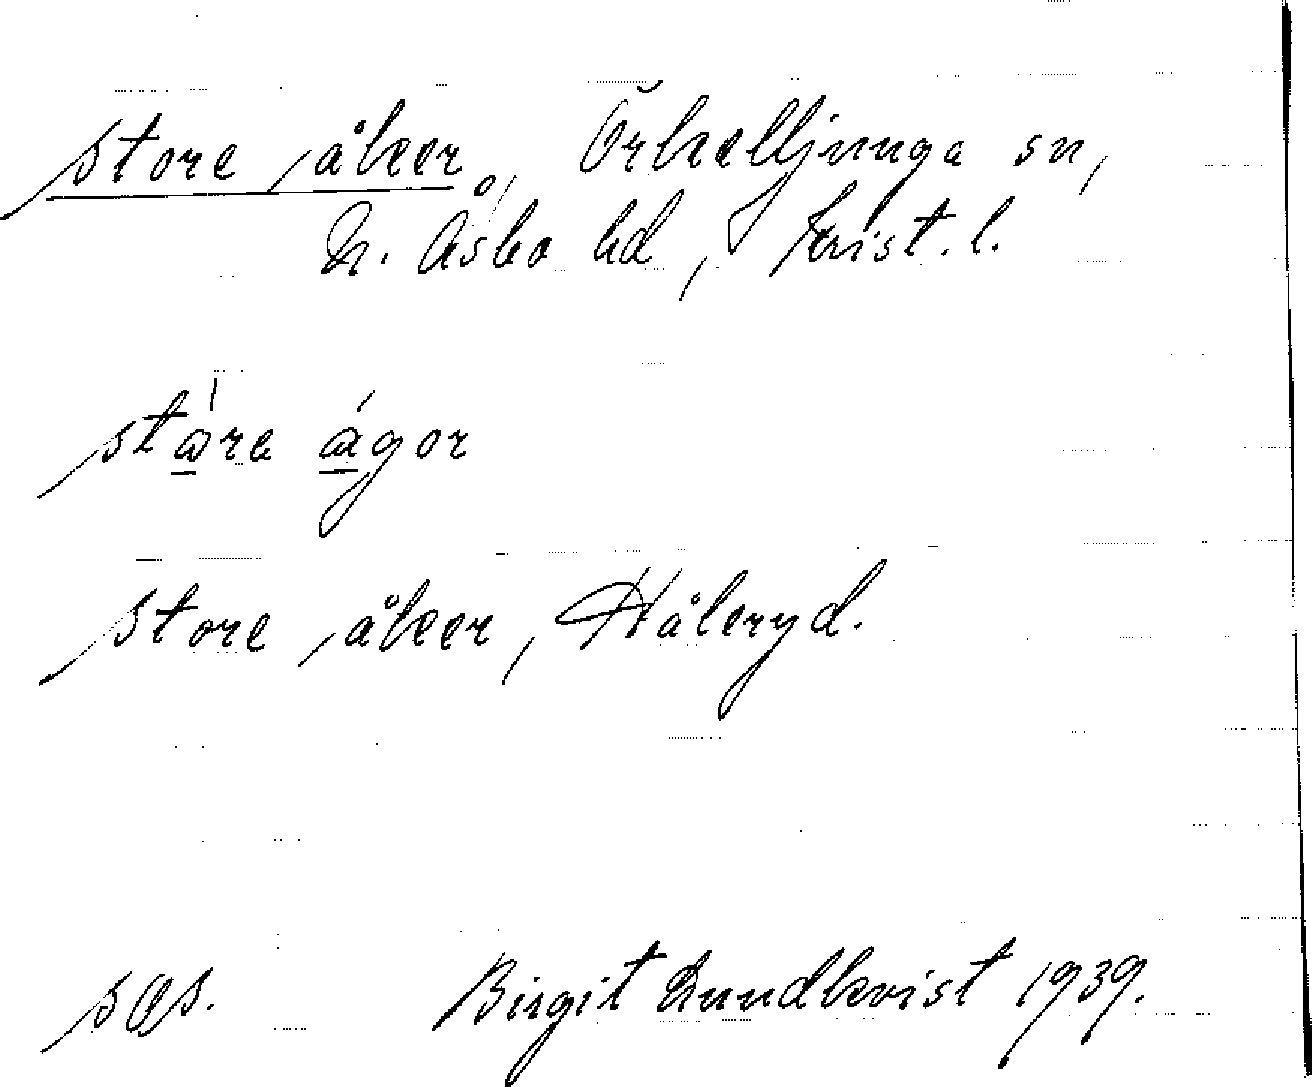 store åker, Örkelljunga sn,
N. Åsbo hd, Krist. l.
store ågor
store åker, Håleryd.
sgs. Birgit Lundkvist 1939.